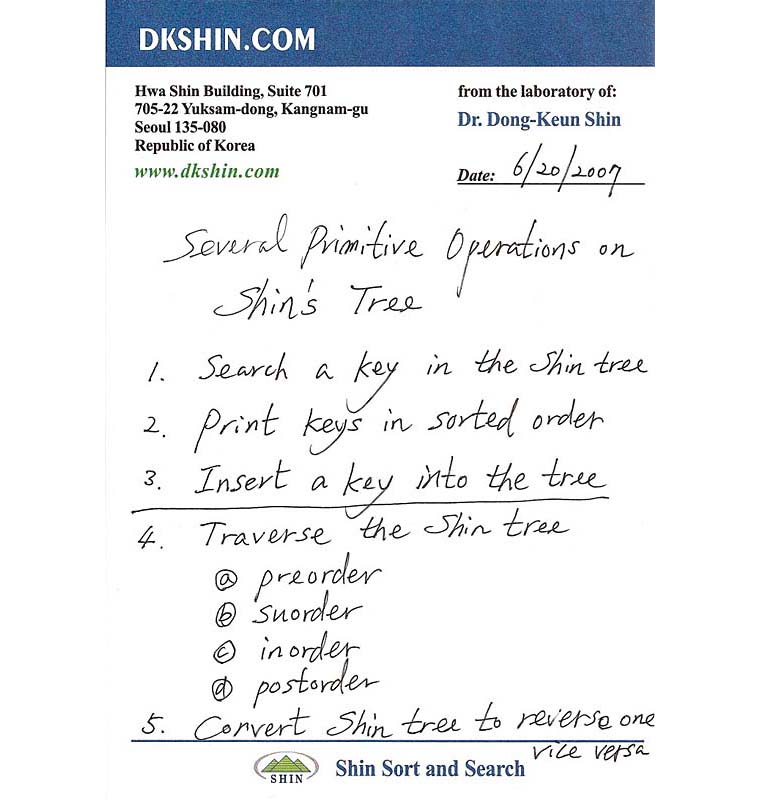 DKSHIN.COM
Hwa Shin Building, Suite 701
705-22 Yuksam-dong, Kangnam-gu
Seoul 135-080
Republic of Korea
www.dkshin.com
from the laboratory of:
Dr. Dong-Keun Shin
Date: 6/20/2007
Several Primitive Operations on
Shin's Tree
1. Search a key in the Shin tree
2. Print keys in sorted order
3. Insert a key into the tree
4. Traverse the Shin tree
ⓐ preorder
ⓑ suorder
ⓒ inorder
ⓓ postorder
5. Convert Shin tree to reverse one
vice versa
SHIN
Shin Sort and Search